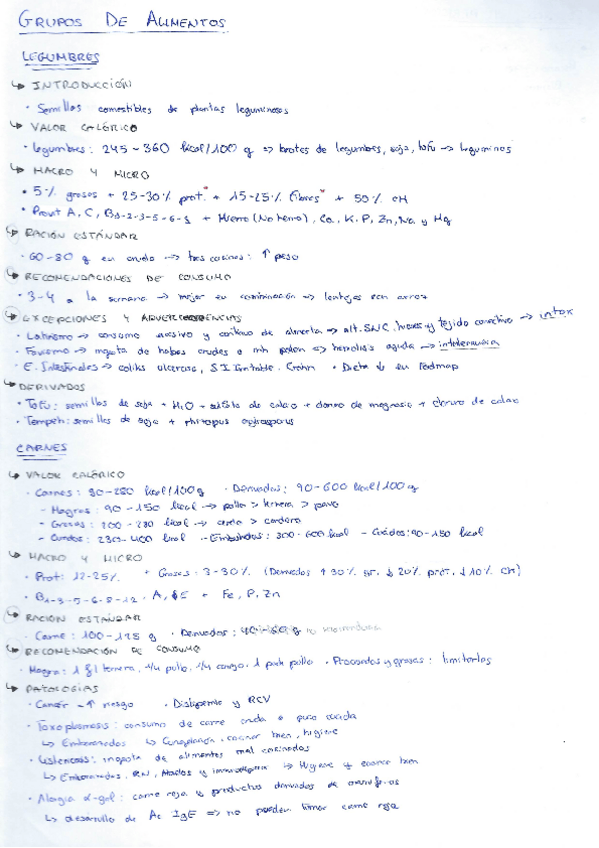 GRUPOS DE ALIMENTOS
LEGUMBRES
↳ INTRODUCCIÓN
· Semillas comestibles de plantas leguminosas
↳ VALOR CALÓRICO
· legumbres: 245-360 kcal/100 g => brotes de legumbres, soja, tofu -> leguminos
↳ MACRO Y MICRO
· 5% grasas + 25-30% prot. + 15-25% fibras + 50% CH
· Provit A, C, B1-2-3-5-6-9 + Hierro (No hemo), Ca, K, P, Zn, Na y Mg
↳ RACIÓN ESTÁNDAR
· 60-80 g en crudo -> tras cocinar: ↑ peso
↳ RECOMENDACIONES DE CONSUMO
· 3-4 a la semana -> mejor en combinación => lentejas con arroz
↳ EXCEPCIONES Y ADVERTENCIAS
· Latirismo -> consumo excesivo y continuo de almorta -> alt. SNC, huesos y tejido conectivo -> intox
· Favismo -> ingesta de habas crudas o inh polen => hemolisis aguda -> intolerancia
· E. Intestinales -> colitis ulcerosa, SI Irritable, Crohn · Dieta ↓ en fodmap
↳ DERIVADOS
· Tofu: semillas de soja + H2O + sulfato de calcio + cloruro de magnesio + cloruro de calcio
· Tempeh: semillas de soja + rhizopus oligosporus
CARNES
↳ VALOR CALÓRICO
· Carnes: 90-280 kcal/100g · Derivados: 90-600 kcal/100 g
- Magras: 90-150 kcal -> pollo > ternera > pavo
- Grasas: 200-280 kcal -> cerdo > cordero
- Curados: 230-400 kcal - Embutidos: 300-600 kcal - Cocidos: 90-150 kcal
↳ MACRO Y MICRO
· Prot: 12-25% · Grasas: 3-30% (Derivados ↑ 30% gr. ↓ 20% prot. ↓ 10% CH)
· B1-3-5-6-8-12, A, E + Fe, P, Zn
↳ RACIÓN ESTÁNDAR
· Carne: 100-125 g · Derivados: 40-60 g
↳ RECOMENDACIÓN DE CONSUMO
· Magra: 1 ternera, 1/4 pollo, 1/4 conejo, 1 pollo · Procesadas y grasas: limitarlas
↳ PATOLOGÍAS
· Cancer -> ↑ riesgo · Dislipemia y RCV
· Toxoplasmosis: consumo de carne cruda o poco cocida
↳ Embarazadas ↳ Congelación, cocinar bien, higiene
· Listeriosis: ingesta de alimentos mal cocinados
↳ Embarazadas, RN, ↳ Higiene y cocinar bien
· Alergia α-gal: carne roja y productos derivados de mamíferos
↳ desarrollo de Ac IgE => no pueden tomar carne roja